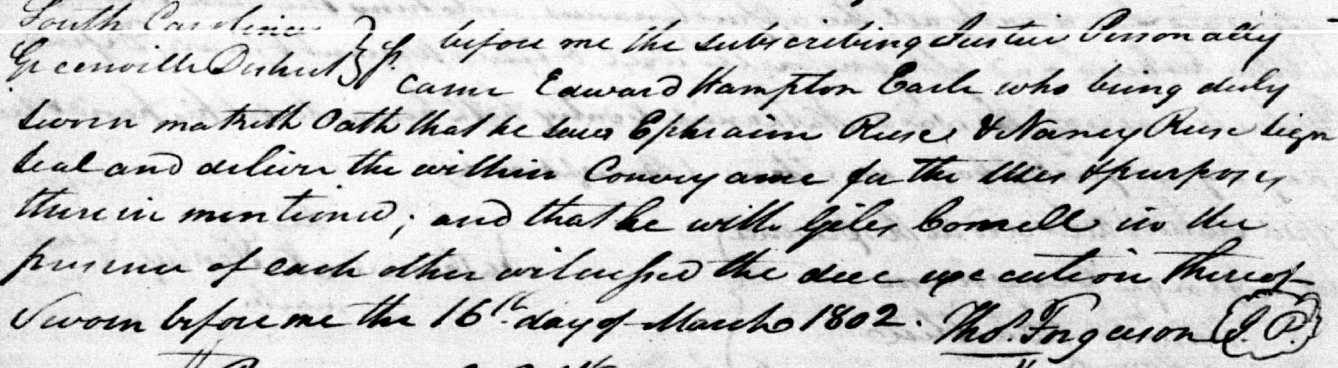 South Carolina } before me the subscribing Justice Personally
Greenville District } Ss. came Edward Hampton Earle who being duly
sworn maketh Oath that he saw Ephraim Reese & Nancy Reese sign
seal and deliver the within Conveyance for the Uses & purposes
therein mentioned; and that he with Giles Connell in the
presence of each other witnessed the due execution thereof
Sworn before me the 16th day of March 1802. Thos. Forgeuson J. P.